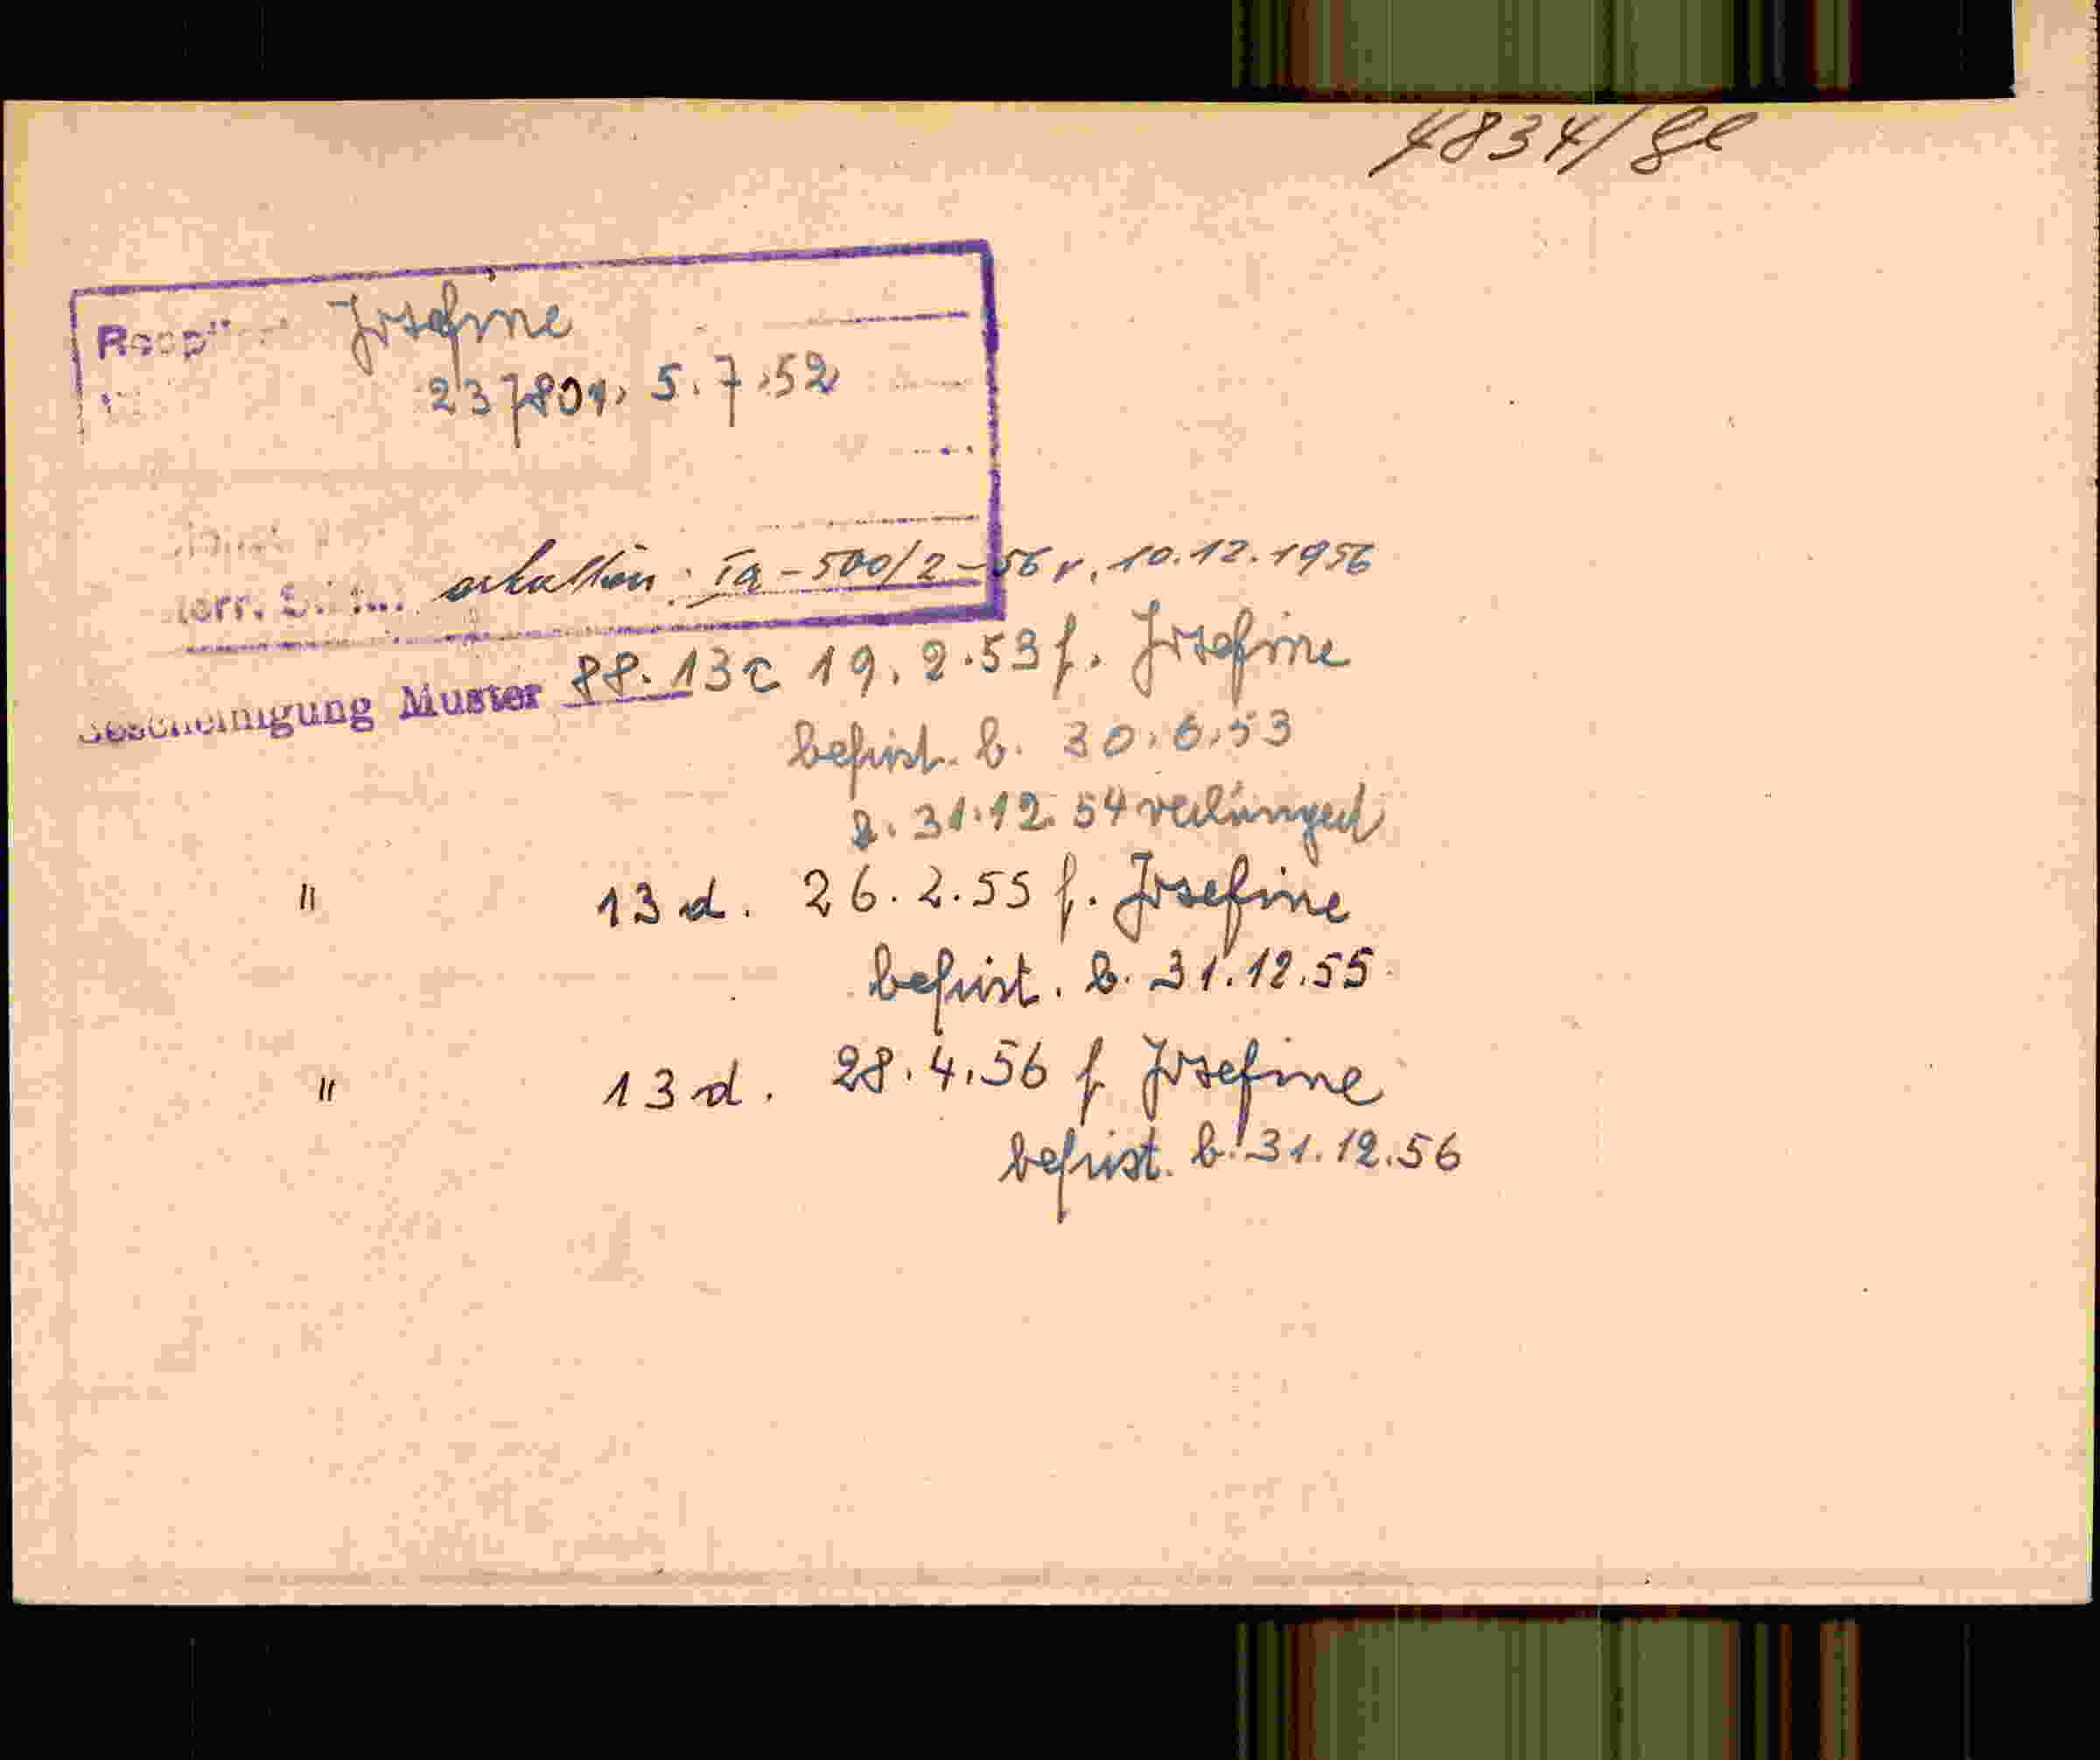 4834/
Josefine
237801, 5.7.52
erhalten: Ia-500/2-56 v. 10.12.1956
Bescheinigung Muster 88.13c 19.2.53 f. Josefine
befrist. b. 30.6.53
31.12.54 verlängert
" 13d. 26.2.55 f. Josefine
befrist. b. 31.12.55
" 13d. 28.4.56 f Josefine
befrist. b. 31.12.56